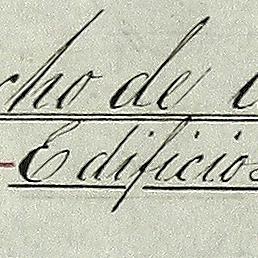 cho de
Edificios